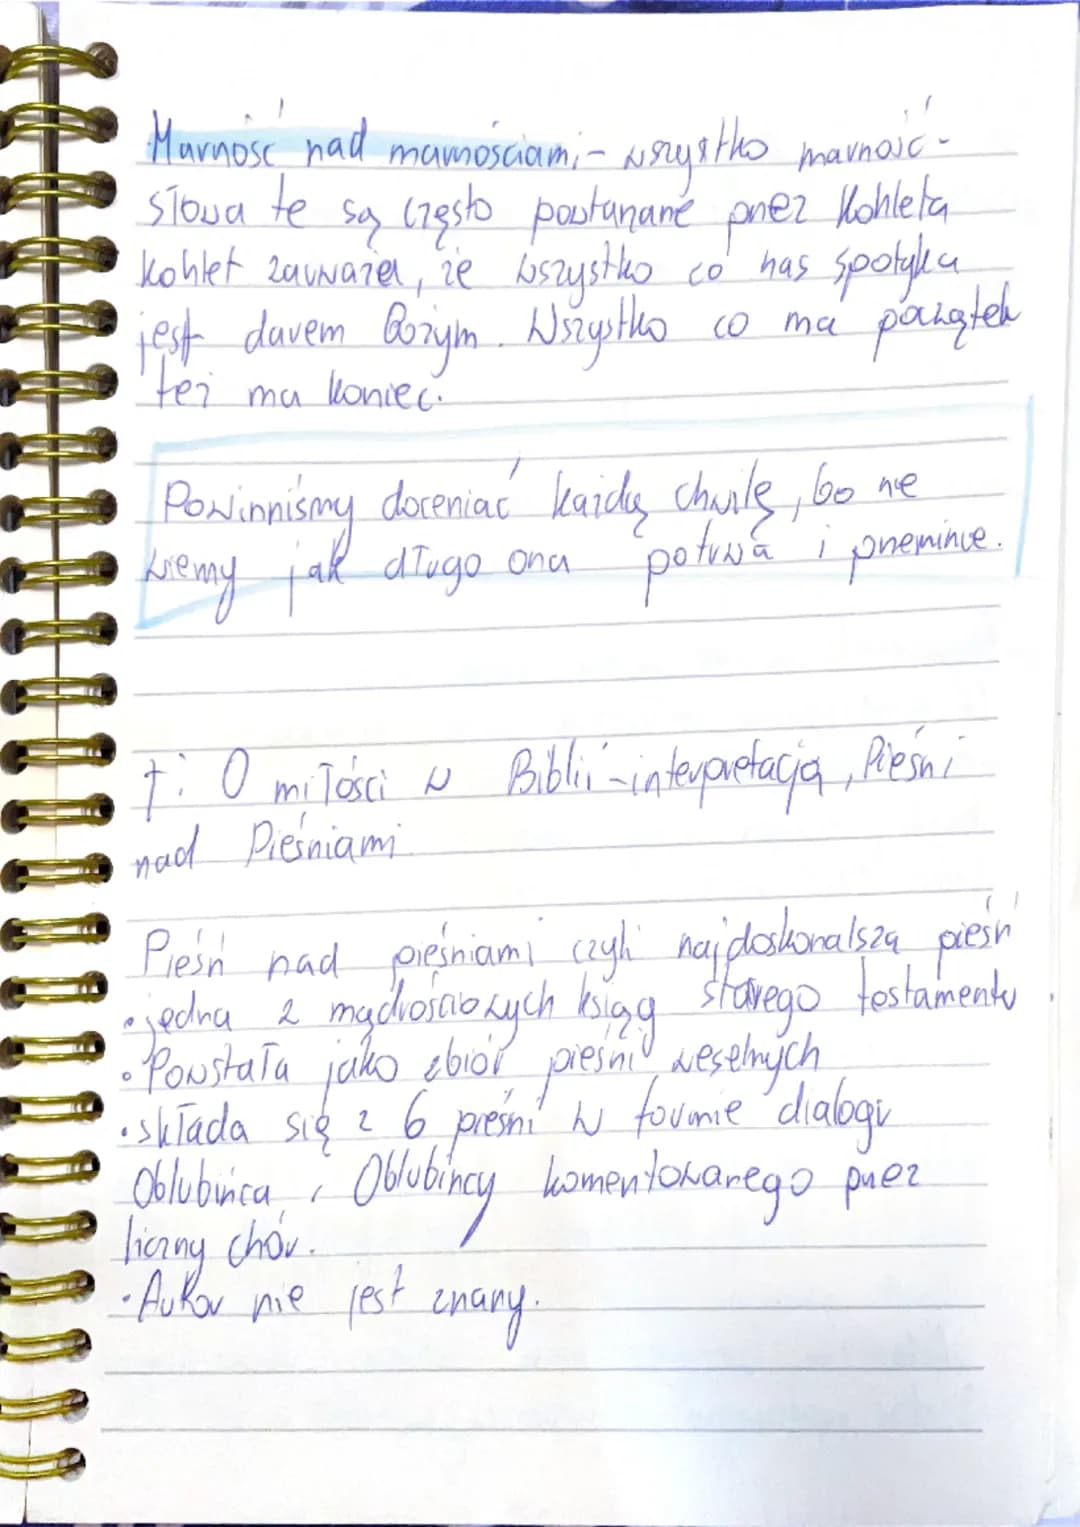 Marność nad marnościami - wszystko marność -
słowa te są często powtarzane przez Kohleta
Kohlet zauważa, że wszystko co nas spotyka
jest darem Bożym. Wszystko co ma początek
też ma koniec.
Powinniśmy doceniać każdą chwilę, bo nie
wiemy jak długo ona potrwa i przeminie.
T: O miłości w Biblii - interpretacja, Pieśni
nad Pieśniami
Pieśń nad pieśniami czyli najdoskonalsza pieśń
• jedna z mądrościowych ksiąg starego testamentu.
• Powstała jako zbiór pieśni weselnych
• składa się z 6 pieśni w formie dialogu
Oblubińca i Oblubińcy komentowanego przez
liczny chór.
• Autor nie jest znany.